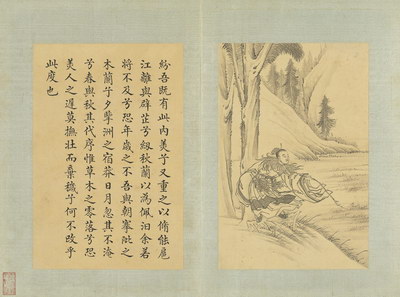 紛吾既有此內美兮又重之以脩能扈
江離與辟芷兮紉秋蘭以為佩汨余若
將不及兮恐年歲之不吾與朝搴阰之
木蘭兮夕擥洲之宿莽日月忽其不淹
兮春與秋其代序惟草木之零落兮恐
美人之遲莫撫壯而棄穢兮何不改乎
此度也